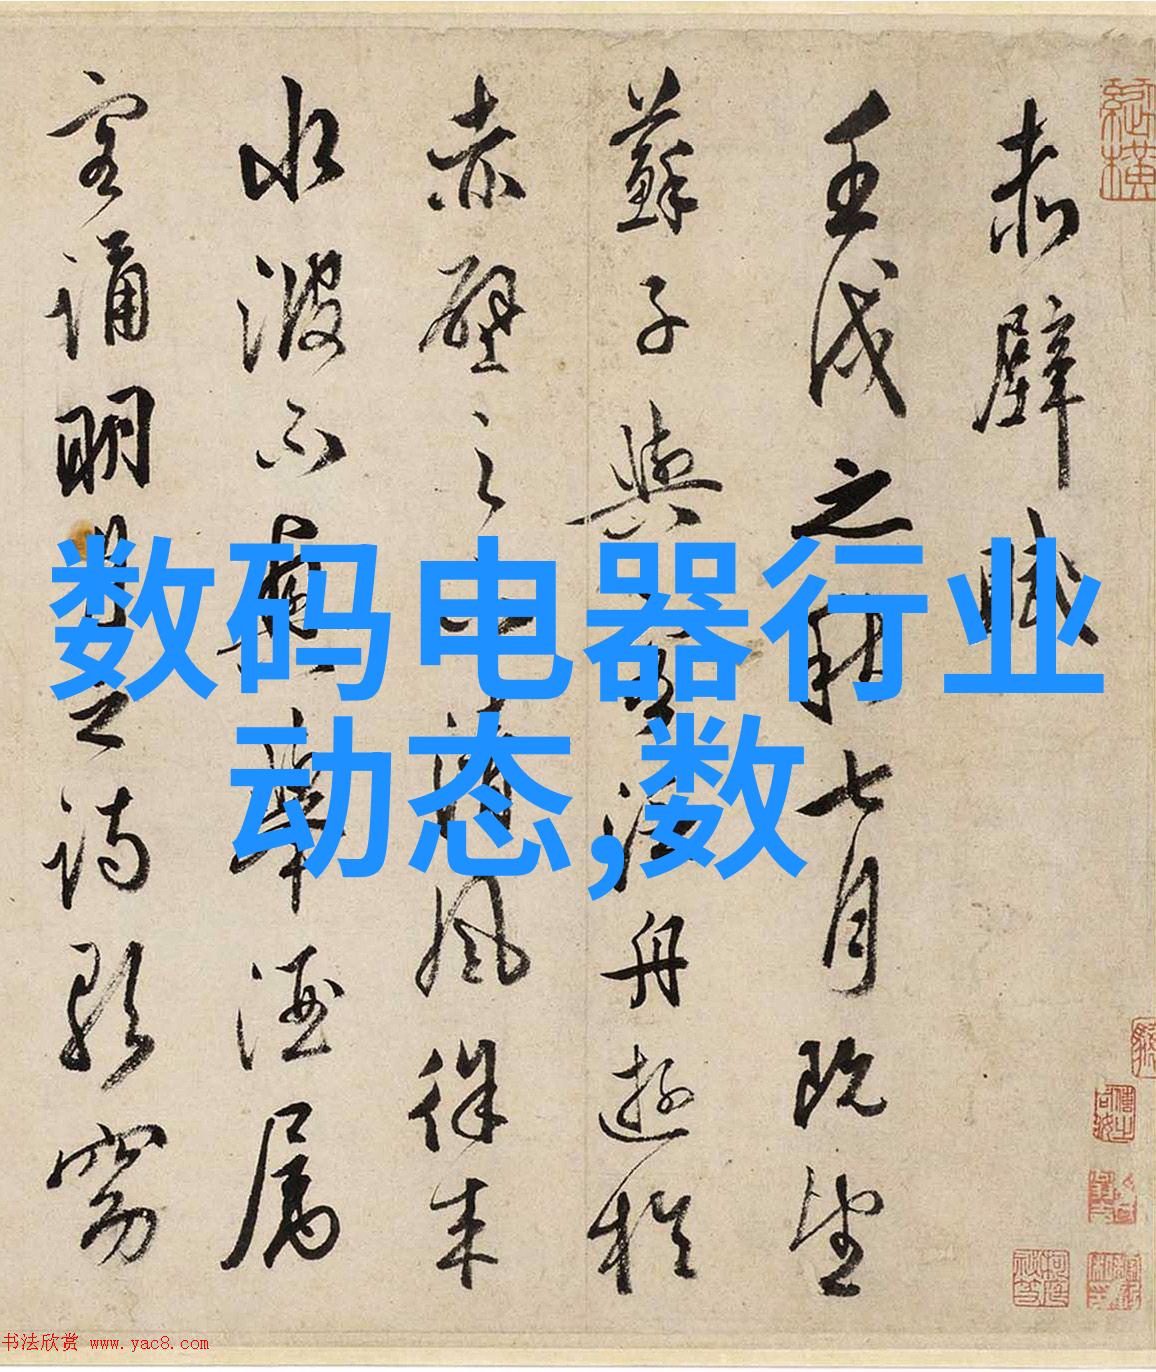 赤壁賦
壬戌之秋七月既望
蘇子與客泛舟遊於
赤壁之下清風徐來
水波不興舉酒屬
客誦明月之詩歌窈
数码电器行业
动态,数
书法欣赏 www.yac8.com